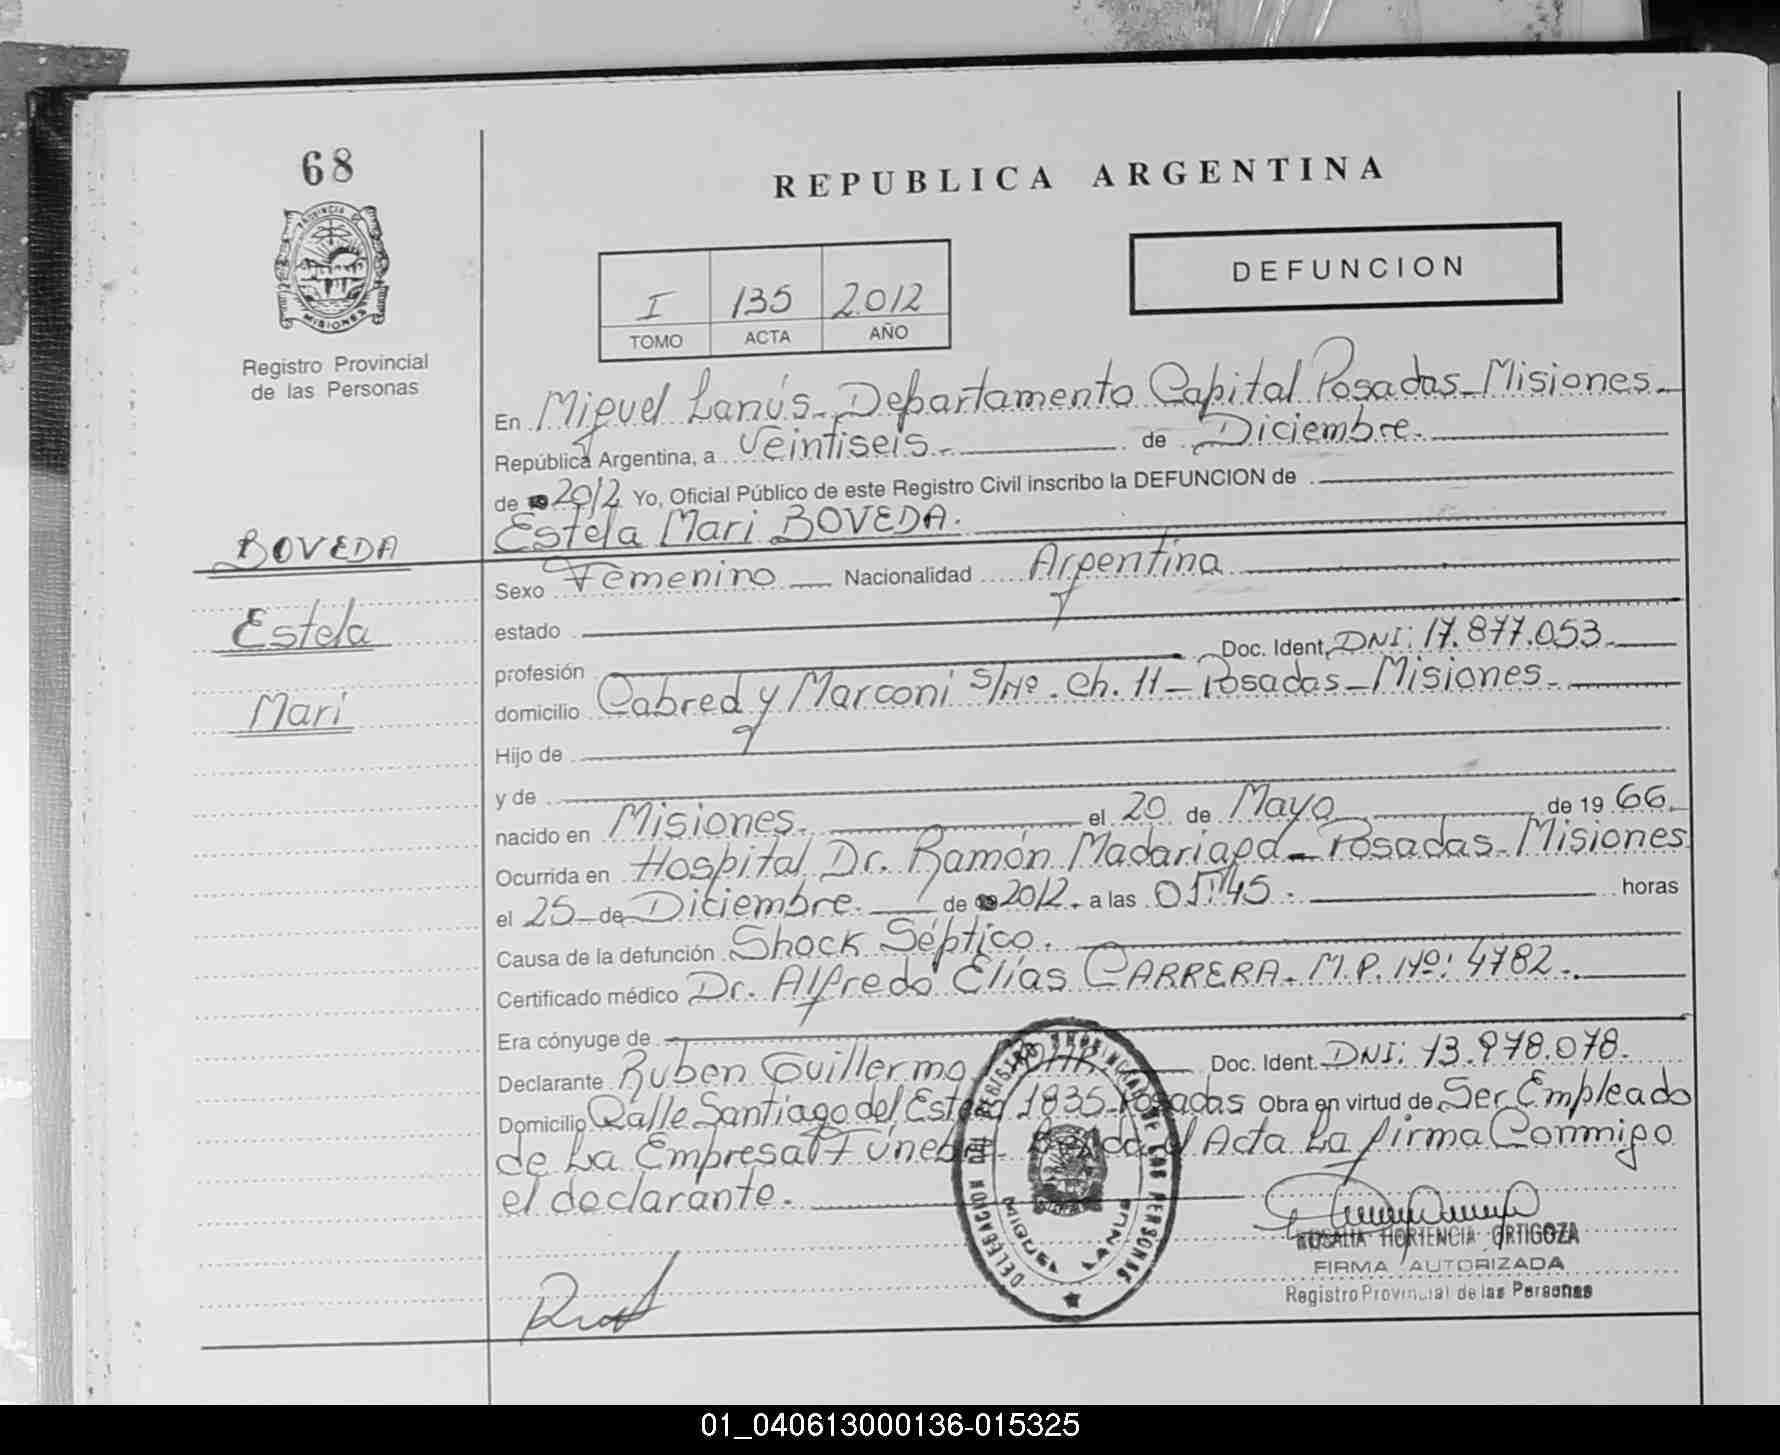 68
PROVINCIA DE
MISIONES
Registro Provincial
de las Personas
REPUBLICA ARGENTINA
I 135 2012
TOMO ACTA AÑO
DEFUNCION
En Miguel Lanús - Departamento Capital Posadas - Misiones -
República Argentina, a Veintiseis - de Diciembre.
de 2012 Yo, Oficial Público de este Registro Civil inscribo la DEFUNCION de
Estela Mari BOVEDA.
BOVEDA
Estela
Mari
Sexo Femenino Nacionalidad Argentina
estado
profesión Doc. Ident. DNI: 17.877.053.
domicilio Cabred y Marconi S/Nº. Ch. 11 - Posadas - Misiones -
Hijo de
y de
nacido en Misiones. el 20 de Mayo de 1966.
Ocurrida en Hospital Dr. Ramón Madariaga - Posadas - Misiones
el 25 de Diciembre. de 2012. a las 01:45. horas
Causa de la defunción Shock Séptico.
Certificado médico Dr. Alfredo Elías CARRERA. M.P. Nº: 4782.
Era cónyuge de
Declarante Ruben Guillermo Doc. Ident. DNI: 13.978.078.
Domicilio Calle Santiago del Estero 1835 - Posadas Obra en virtud de Ser Empleado
de La Empresa Fúnebre. Leida el Acta La firma Conmigo
el declarante.
DELEGACION DEL REGISTRO PROVINCIAL DE LAS PERSONAS
MIGUEL LANUS
ROSALIA HORTENCIA ORTIGOZA
FIRMA AUTORIZADA
Registro Provincial de las Personas
01_040613000136-015325